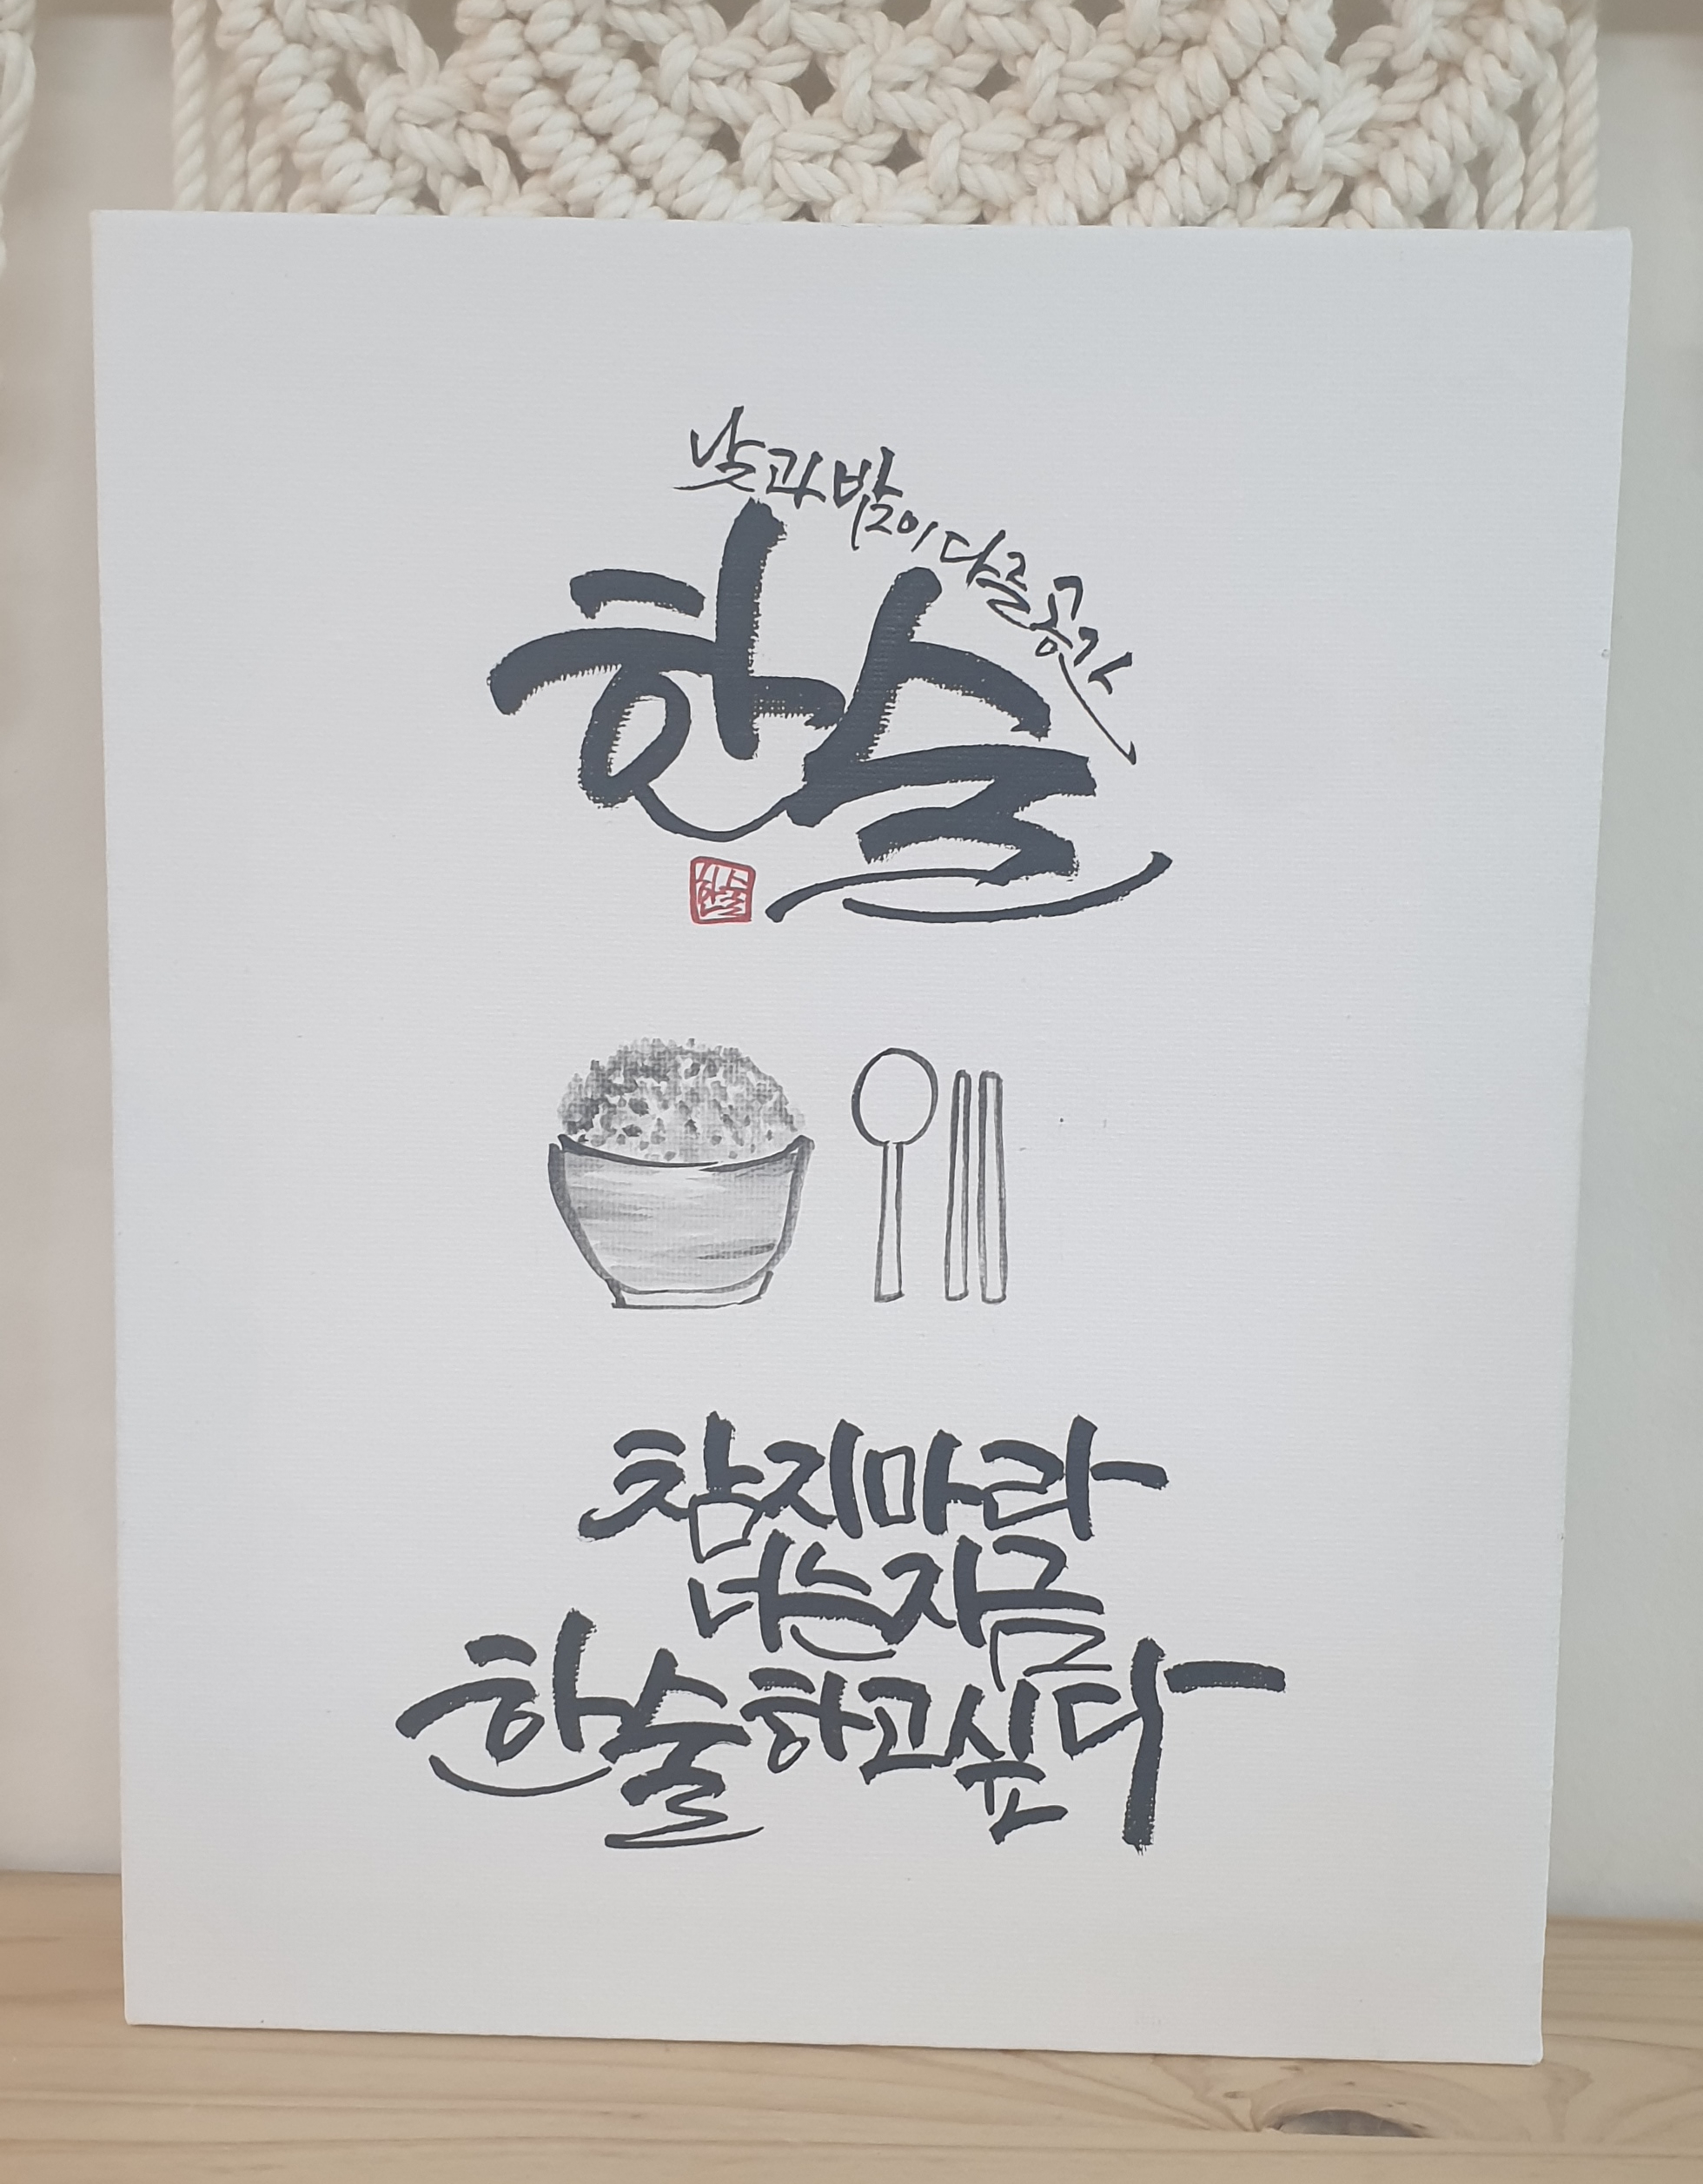 낮과 밤이 다른 공간
한술
한술
참지마라
너는 지금
한술하고싶다